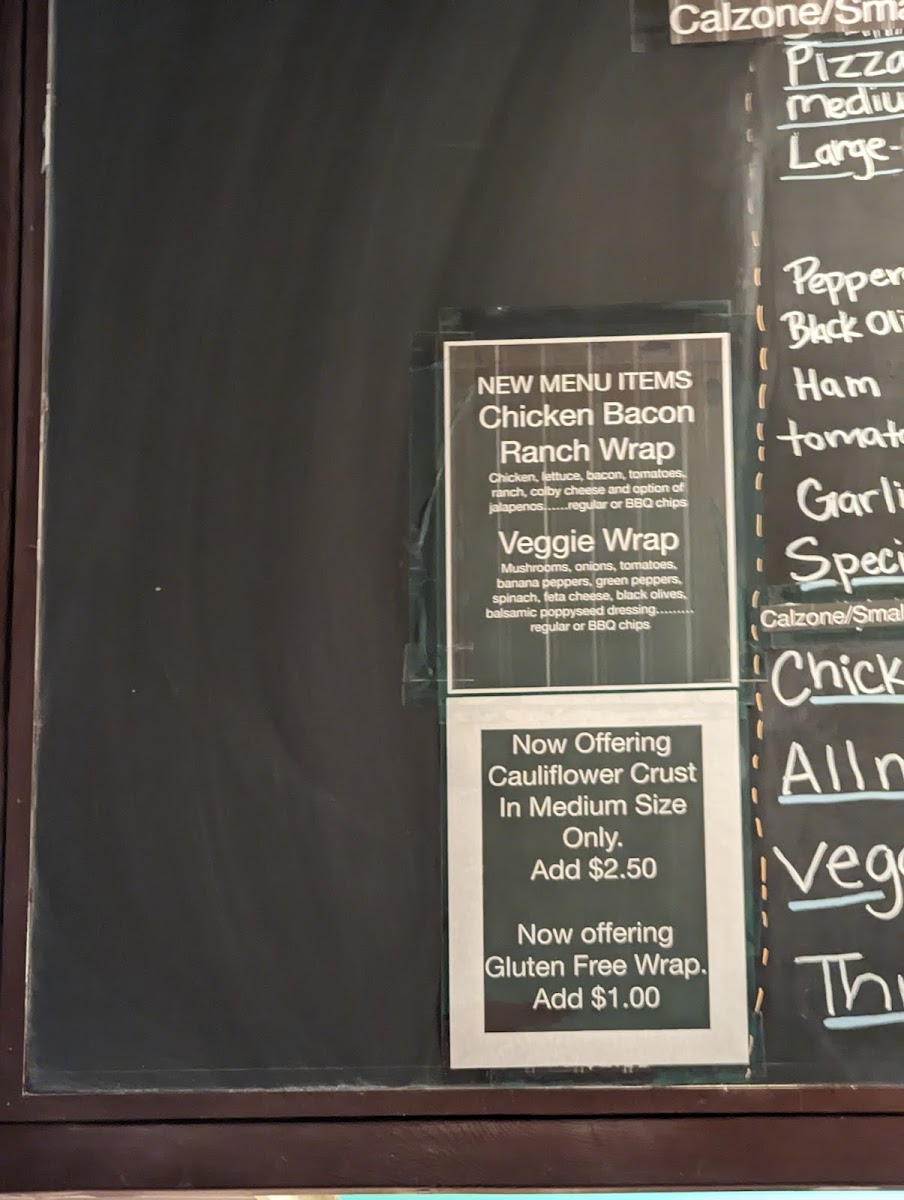 NEW MENU ITEMS
Chicken Bacon
Ranch Wrap
Chicken, lettuce, bacon, tomatoes,
ranch, colby cheese and option of
jalapenos......regular or BBQ chips
Veggie Wrap
Mushrooms, onions, tomatoes,
banana peppers, green peppers,
spinach, feta cheese, black olives,
balsamic poppyseed dressing.........
regular or BBQ chips
Now Offering
Cauliflower Crust
In Medium Size
Only.
Add $2.50
Now offering
Gluten Free Wrap.
Add $1.00
Calzone/Sma
Pizza
mediu
Large-
Pepper
Black Oli
Ham
tomato
Garli
Speci
Calzone/Smal
Chick
All
Vegg
Th